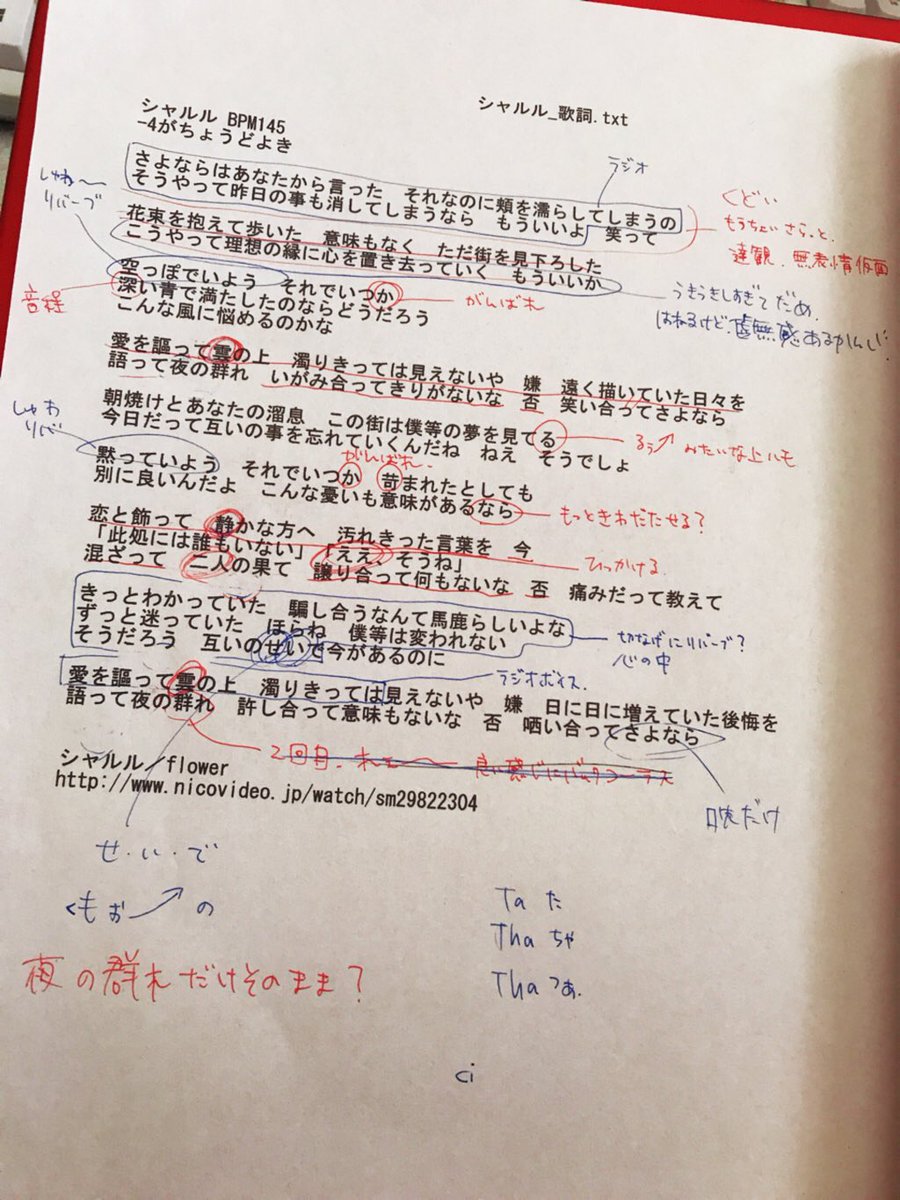 シャルル_歌詞.txt
シャルル BPM145
-4がちょうどよき
ラジオ
さよならはあなたから言った　それなのに頬を濡らしてしまうの
そうやって昨日の事も消してしまうなら　もういいよ　笑って
しゅわ〜
リバーブ
くどい
もうちょいさらっと、
達観、無表情仮面
花束を抱えて歩いた　意味もなく　ただ街を見下ろした
こうやって理想の縁に心を置き去っていく　もういいか
うきうきしすぎてだめ
はねるけど、虚無感あるかんじ
空っぽでいよう　それでいつか
がんばれ
音程
深い青で満たしたのならどうだろう
こんな風に悩めるのかな
愛を謳って雲の上　濁りきっては見えないや　嫌　遠く描いていた日々を
語って夜の群れ　いがみ合ってきりがないな　否　笑い合ってさよなら
しゅわ
リバ
朝焼けとあなたの溜息　この街は僕等の夢を見てる
るぅ↗みたいな上ハモ
今日だって互いの事を忘れていくんだね　ねえ　そうでしょ
がんばれ
黙っていよう　それでいつか　苛まれたとしても
別に良いんだよ　こんな憂いも意味があるなら
もっときわだたせる?
恋と飾って　静かな方へ　汚れきった言葉を　今
「此処には誰もいない」「ええ、そうね」
ひっかける
混ざって　二人の果て　譲り合って何もないな　否　痛みだって教えて
きっとわかっていた　騙し合うなんて馬鹿らしいよな
ずっと迷っていた　ほらね　僕等は変われない
そうだろう　互いのせいで今があるのに
切なげにリバーブ?
心の中
ラジオボイス.
愛を謳って雲の上　濁りきっては見えないや　嫌　日に日に増えていた後悔を
語って夜の群れ　許し合って意味もないな　否　哂い合ってさよなら
2回目、
良い感じにバックコーラス
シャルル／flower
http://www.nicovideo.jp/watch/sm29822304
だけ
せ・い・で
くもぉ↗の
夜の群れだけそのまま?
Ta た
Tha ちゃ
Tha つぁ.
ci